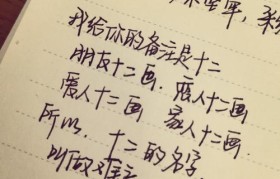 我给你的备注是十二
朋友十二画. 恋人十二画
爱人十二画 家人十二画.
所以. 十二的名字
叫做难忘